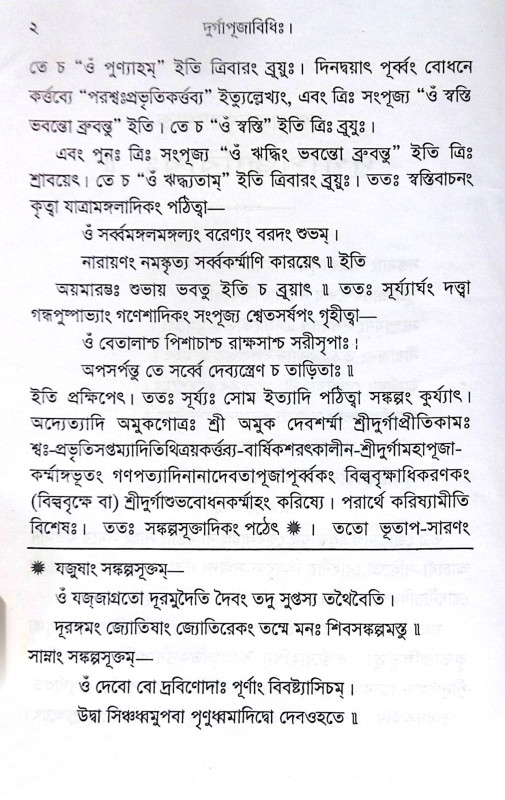 ২
দুর্গাপূজাবিধিঃ।
তে চ “ওঁ পুণ্যাহম্” ইতি ত্রিবারং ব্রূয়ুঃ। দিনদ্বয়াৎ পূর্ব্বং বোধনে
কর্ত্তব্যে “পরশ্বঃপ্রভৃতিকর্ত্তব্য” ইত্যুল্লেখ্যং, এবং ত্রিঃ সংপূজ্য “ওঁ স্বস্তি
ভবন্তো ব্রুবন্তু” ইতি। তে চ “ওঁ স্বস্তি” ইতি ত্রিঃ ব্রূয়ুঃ।
এবং পুনঃ ত্রিঃ সংপূজ্য “ওঁ ঋদ্ধিং ভবন্তো ব্রুবন্তু” ইতি ত্রিঃ
শ্রাবয়েৎ। তে চ “ওঁ ঋদ্ধ্যতাম্” ইতি ত্রিবারং ব্রূয়ুঃ। ততঃ স্বস্তিবাচনং
কৃত্বা যাত্রামঙ্গলাদিকং পঠিত্বা—
ওঁ সর্ব্বমঙ্গলমঙ্গল্যং বরেণ্যং বরদং শুভম্।
নারায়ণং নমস্কৃত্য সর্ব্বকর্ম্মাণি কারয়েৎ॥ ইতি
অয়মারম্ভঃ শুভায় ভবতু ইতি চ ব্রূয়াৎ॥ ততঃ সূর্য্যার্ঘং দত্ত্বা
গন্ধপুষ্পাভ্যাং গণেশাদিকং সংপূজ্য শ্বেতসর্ষপং গৃহীত্বা—
ওঁ বেতালাশ্চ পিশাচাশ্চ রাক্ষসাশ্চ সরীসৃপাঃ।
অপসর্পন্তু তে সর্ব্বে দেব্যস্ত্রেণ চ তাড়িতাঃ॥
ইতি প্রক্ষিপেৎ। ততঃ সূর্য্যঃ সোম ইত্যাদি পঠিত্বা সঙ্কল্পং কুর্য্যাৎ।
অদ্যেত্যাদি অমুকগোত্রঃ শ্রী অমুক দেবশর্ম্মা শ্রীদুর্গাপ্রীতিকামঃ
শ্বঃ-প্রভৃতিসপ্তম্যাদিতিথিত্রয়কর্ত্তব্য-বার্ষিকশরৎকালীন-শ্রীদুর্গামহাপূজা-
কর্ম্মাঙ্গভূতং গণপত্যাদিনানাদেবতাপূজাপূর্ব্বকং বিল্ববৃক্ষাধিকরণকং
(বিল্ববৃক্ষে বা) শ্রীদুর্গাশুভবোধনকর্ম্মাহং করিষ্যে। পরার্থে করিষ্যামীতি
বিশেষঃ। ততঃ সঙ্কল্পসূক্তাদিকং পঠেৎ ✷। ততো ভূতাপ-সারণং
✷ যজুষাং সঙ্কল্পসূক্তম্—
ওঁ যজ্জাগ্রতো দূরমুদৈতি দৈবং তদু সুপ্তস্য তথৈবৈতি।
দূরঙ্গমং জ্যোতিষাং জ্যোতিরেকং তম্মে মনঃ শিবসঙ্কল্পমস্তু॥
সাম্নাং সঙ্কল্পসূক্তম্—
ওঁ দেবো বো দ্রবিণোদাঃ পূর্ণাং বিবষ্ট্যাসিচম্।
উদ্বা সিঞ্চধ্বমুপবা পৃণুধ্বমাদিদ্বো দেবওহতে॥